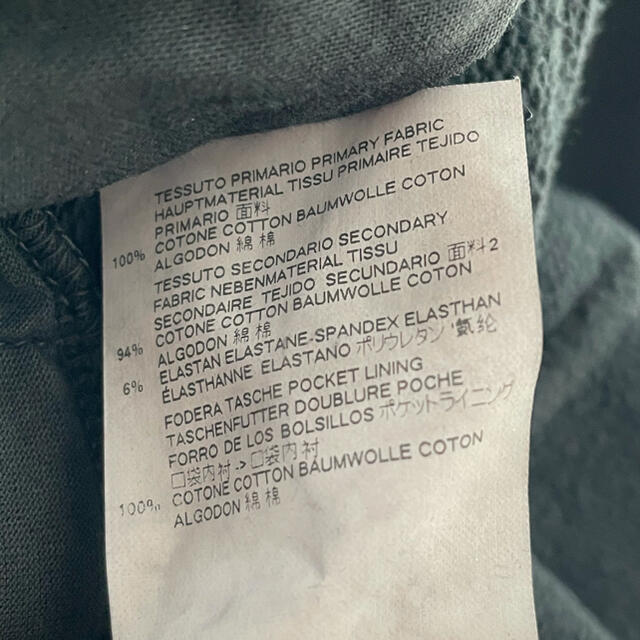 TESSUTO PRIMARIO PRIMARY FABRIC
HAUPTMATERIAL TISSU PRIMAIRE TEJIDO
PRIMARIO 面料
COTONE COTTON BAUMWOLLE COTON
100% ALGODON 綿 棉
TESSUTO SECONDARIO SECONDARY
FABRIC NEBENMATERIAL TISSU
SECONDAIRE TEJIDO SECUNDARIO 面料2
COTONE COTTON BAUMWOLLE COTON
94% ALGODON 綿 棉
ELASTAN ELASTANE-SPANDEX ELASTHAN
6% ÉLASTHANNE ELASTANO ポリウレタン 氨纶
FODERA TASCHE POCKET LINING
TASCHENFUTTER DOUBLURE POCHE
FORRO DE LOS BOLSILLOS ポケットライニング
口袋内衬 -> 口袋内衬
100% COTONE COTTON BAUMWOLLE COTON
ALGODON 綿 棉